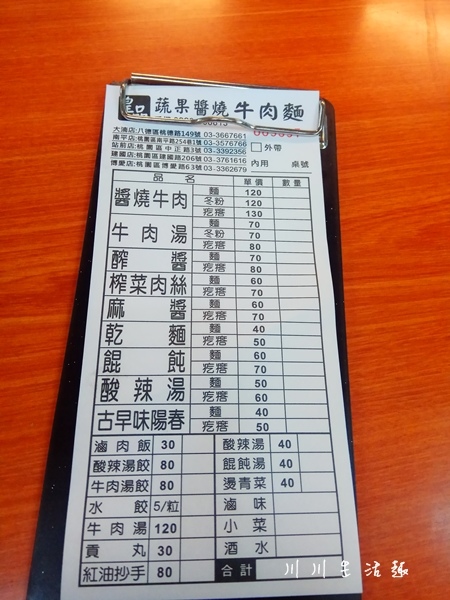 皇品 蔬果醬燒 牛肉麵
大湳店:八德區桃德路149號 03-3667661
南平店:桃園區南平路254巷1號 03-3576766
站前店:桃園區中正路3號 03-3392356
建國店:桃園區建國路206號 03-3761616
博愛店:桃園區博愛路63號 03-3362679
外帶
內用 桌號
品名 單價 數量
醬燒牛肉 麵 120
冬粉 120
疙瘩 130
牛肉湯 麵 70
冬粉 70
疙瘩 80
醡醬 麵 70
疙瘩 80
榨菜肉絲 麵 60
疙瘩 70
麻醬 麵 60
疙瘩 70
乾麵 麵 40
疙瘩 50
餛飩 麵 60
疙瘩 70
酸辣湯 麵 50
疙瘩 60
古早味陽春 麵 40
疙瘩 50
滷肉飯 30 酸辣湯 40
酸辣湯餃 80 餛飩湯 40
牛肉湯餃 80 燙青菜 40
水餃 5/粒 滷味
牛肉湯 120 小菜
貢丸 30 酒水
紅油抄手 80 合計
川川生活趣